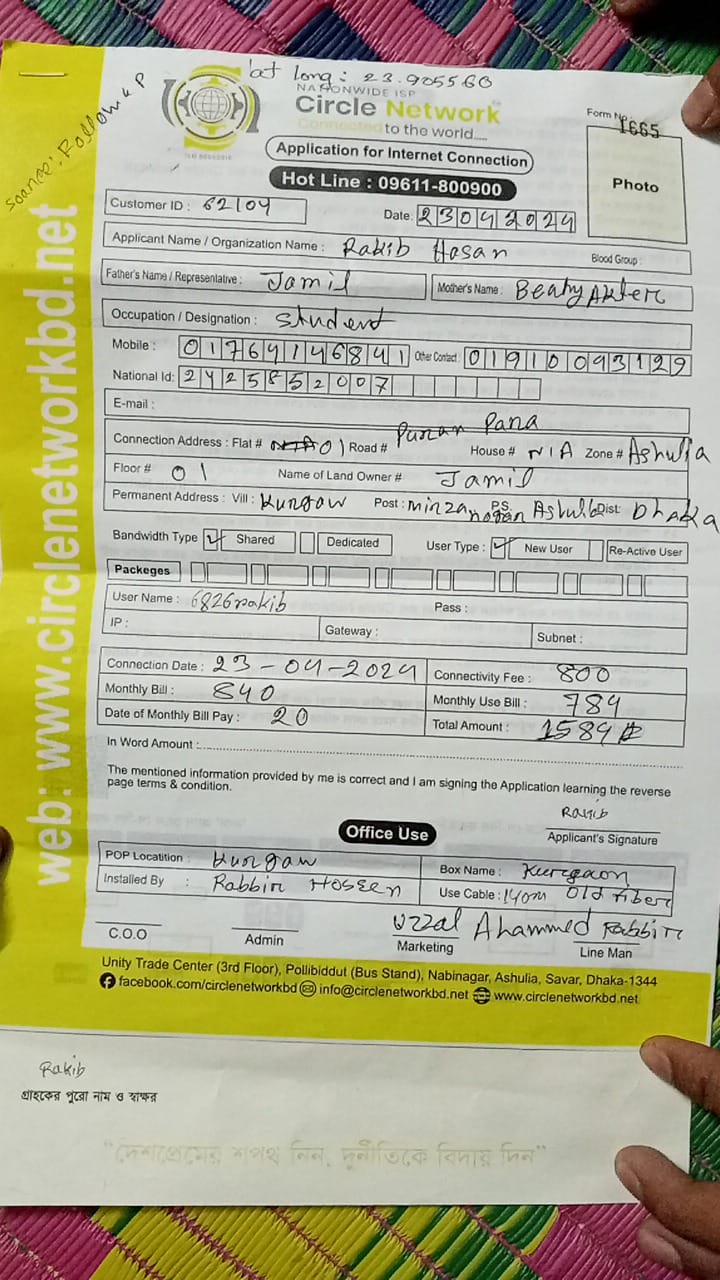 Lat long: 23.905560
Source: Follow up
NATIONWIDE ISP
Circle Network
Connected to the world.....
Form No. 1665
Application for Internet Connection
Photo
Hot Line : 09611-800900
Customer ID : 62104
Date: 23042024
Applicant Name / Organization Name : Rakib Hosan Blood Group :
Father's Name / Representative : Jamil Mother's Name : Beauty Akter
Occupation / Designation : Student
Mobile : 01764146841 Other Contact : 01910093129
National Id: 2425852007
E-mail :
Connection Address : Flat # 01 Road # Puran Para House # N/A Zone # Ashulia
Floor # 01 Name of Land Owner # Jamil
Permanent Address : Vill : Kurgaw Post : Mirzanagar P.S. Ashulia Dist: Dhaka
Bandwidth Type Shared Dedicated User Type : New User Re-Active User
Packeges
User Name : 6826rakib Pass :
IP : Gateway : Subnet :
Connection Date : 23-04-2024 Connectivity Fee : 800
Monthly Bill : 840 Monthly Use Bill : 784
Date of Monthly Bill Pay : 20 Total Amount : 1584
In Word Amount :
The mentioned information provided by me is correct and I am signing the Application learning the reverse
page terms & condition.
Rakib
Applicant's Signature
Office Use
POP Locatition : Kurgaw Box Name : Kurgaon
Installed By : Rabbir Hossen Use Cable : 140m Old fiber
Uzzal Ahammed Rabbir
C.O.O Admin Marketing Line Man
Unity Trade Center (3rd Floor), Pollibiddut (Bus Stand), Nabinagar, Ashulia, Savar, Dhaka-1344
facebook.com/circlenetworkbd info@circlenetworkbd.net www.circlenetworkbd.net
web: www.circlenetworkbd.net
Rakib
গ্রাহকের পুরো নাম ও স্বাক্ষর
"দেশপ্রেমের শপথ নিন, দুর্নীতিকে বিদায় দিন"